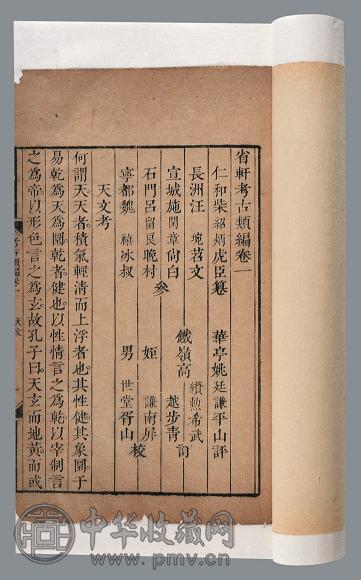 省軒考古類編卷一
仁和柴紹炳虎臣纂 華亭姚廷謙平山評
長洲汪琬苕文
宣城施閏章尚白 鐵嶺高纘勲希武
越步青 訂
石門呂留良晚村 參 姪謙南屏
寧都魏禧冰叔 男世堂胥山 校
天文考
何謂天天者積氣輕清而上浮者也其性健其象圓于
易乾爲天爲圜乾者健也以性情言之爲乾以宰制言
之爲帝以形色言之爲玄故孔子曰天玄而地黃而或
考古類編卷一 天文
中华收藏网
www.pmv.cn